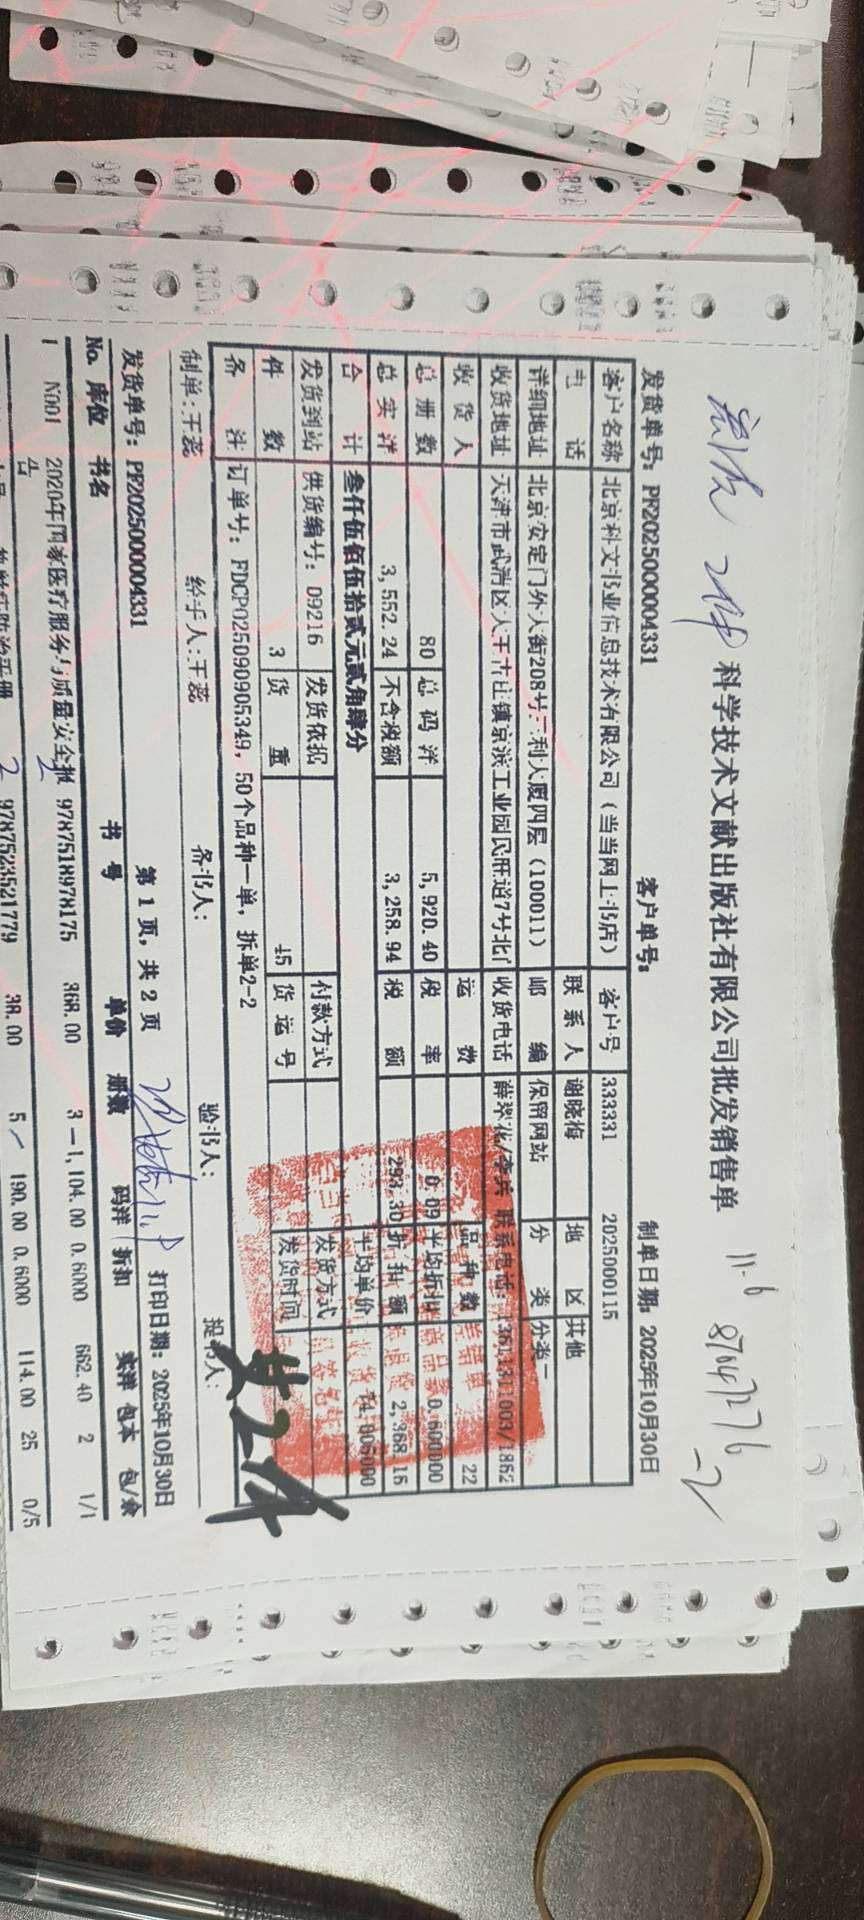 2件 科学技术文献出版社有限公司批发销售单 11.6 87047276 -2
发货单号: PF2025000004331 客户单号: 制单日期: 2025年10月30日
客户名称 北京科文书业信息技术有限公司(当当网上书店) 客户号 333331 2025000115
电 话 联系人 谢晓梅 地 区 其他
详细地址 北京安定门外大街208号三利大厦四层(100011) 邮 编 保留网站 分 类 分类一
收货地址 天津市武清区大王古庄镇京滨工业园民旺道7号北门 收货电话 薛翠花/李兵 联系电话: 13611311003/1862
收 货 人 运 费 品 种 数 22
总 册 数 80 总 码 洋 5,920.40 税 率 0.09 平均折扣 0.600000
总 实 洋 3,552.24 不含税额 3,258.94 税 额 293.30 折 扣 额 2,368.16
合 计 叁仟伍佰伍拾贰元贰角肆分 平均单价 74.005000
发货到站 供货编号: D9216 发货依据 付款方式 发货方式
件 数 3 货 重 45 货 运 号 发货时间
备 注 订单号: FDCP025090905349, 50个品种一单, 拆单2-2
共2件
制单: 王蕊 经手人: 王蕊 备书人: 验书人: 提书人:
第 1 页, 共 2 页
发货单号: PF2025000004331 打印日期: 2025年10月30日
No. 库位 书名 书 号 单价 册数 码洋 折扣 实洋 包本 包/余
1 N001 2020年国家医疗服务与质量安全报告 2 9787518978175 368.00 3 1,104.00 0.6000 662.40 2 1/1
防治手册 2 9787523521779 38.00 5 190.00 0.6000 114.00 25 0/5